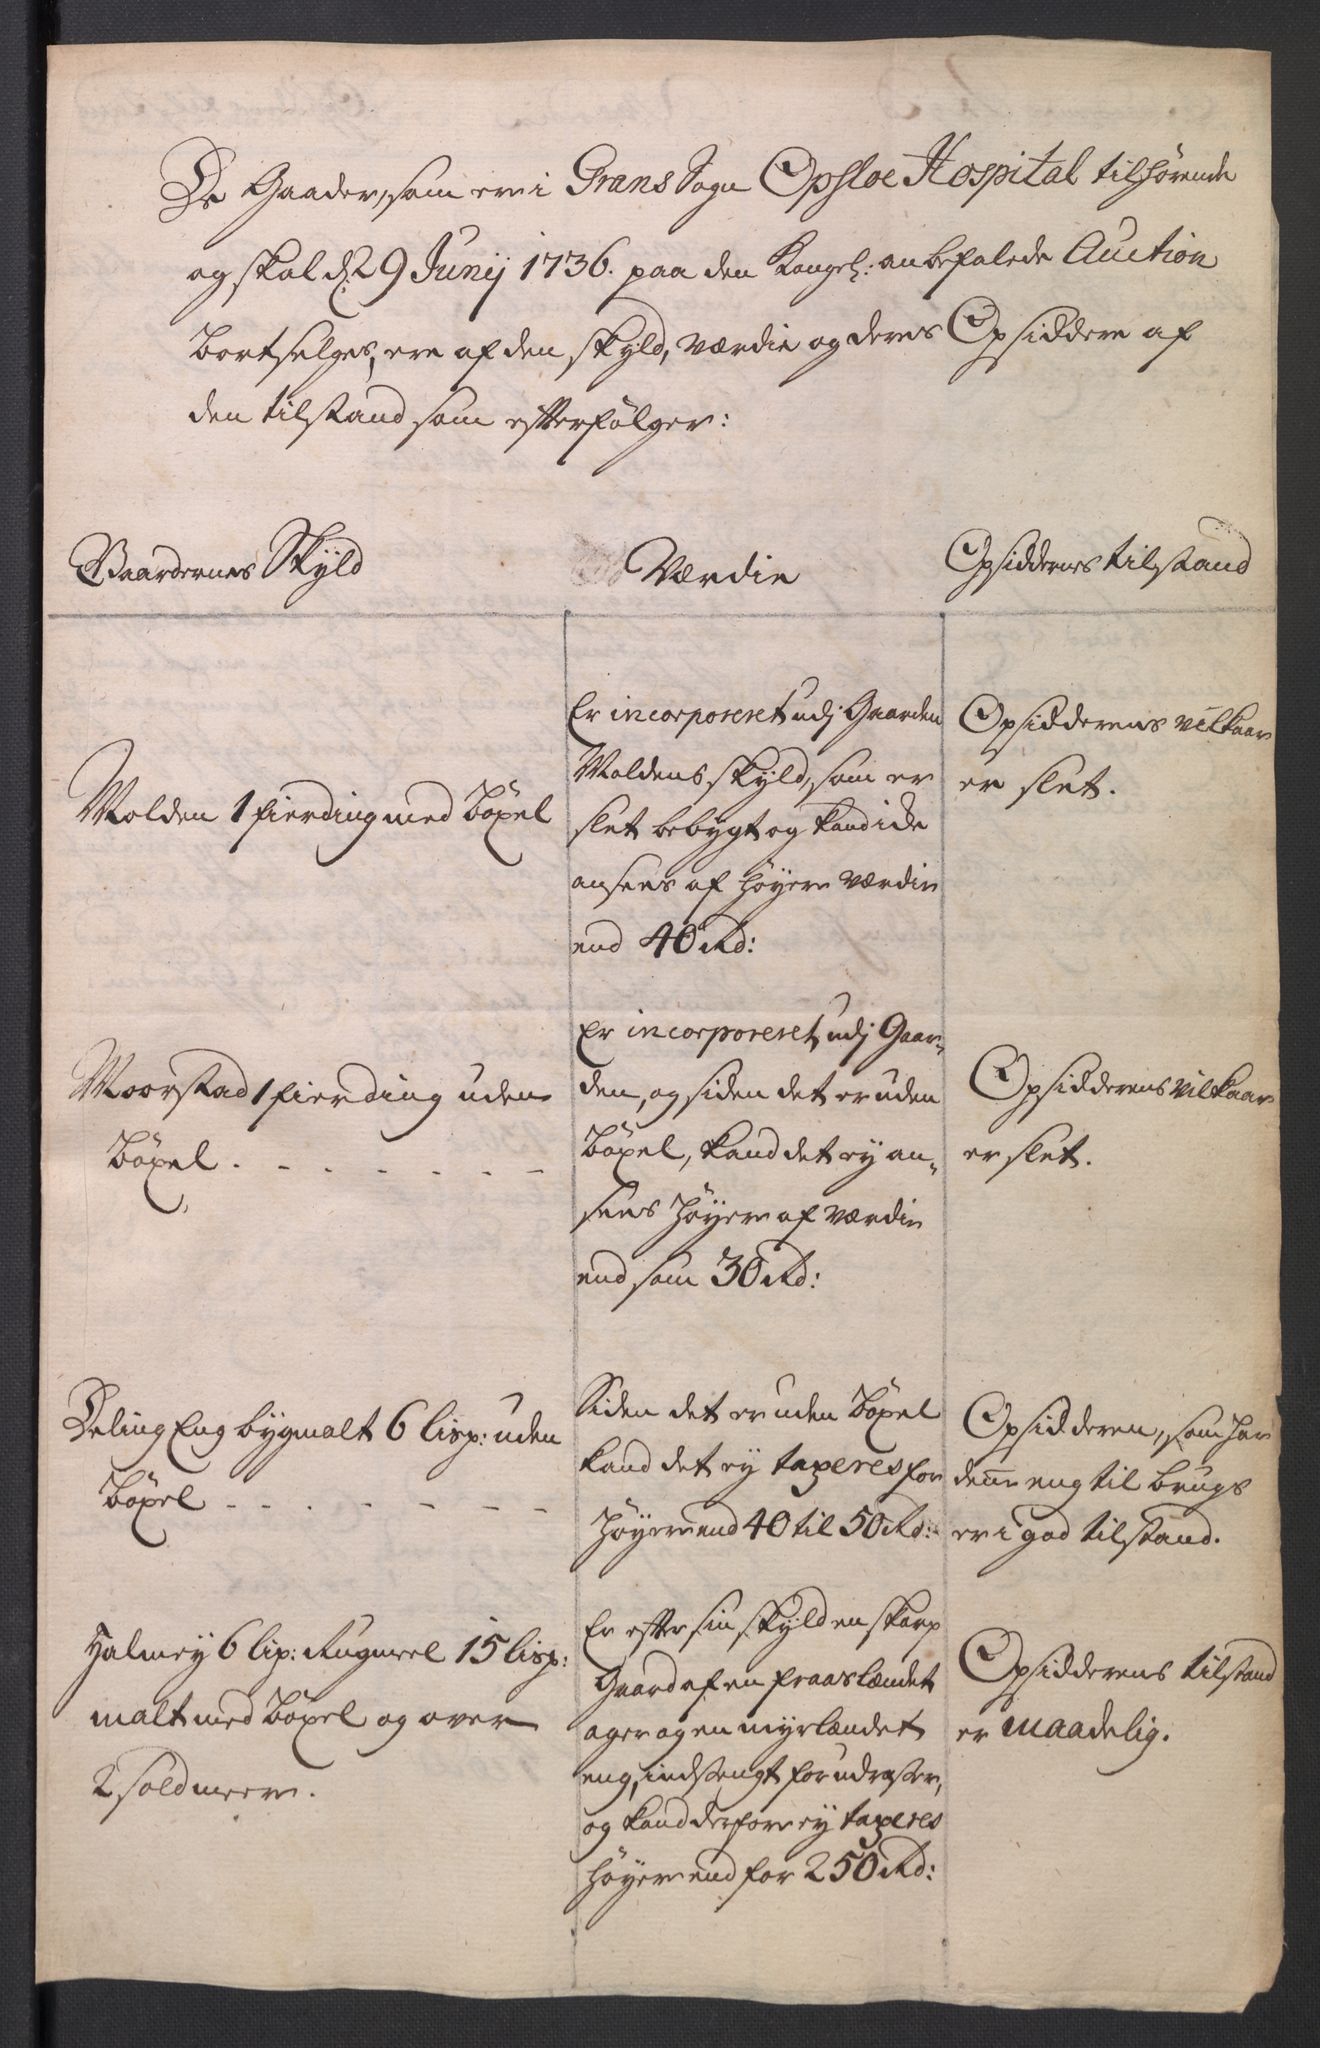 De Gaarder, som ere i Grans Sogn Opsloe Hospital tilhørende
og skal d: 29 Junij 1736. paa den Kongel: anbefalede Auction
bortselges, ere af den skyld, værdie og deres Opsiddere af
den tilstand som efterfølger:
Gaardernes Skyld
Værdie
Opsiddernes tilstand
Molden 1 fierding med böxel
Er incorporeret udj Gaarden
Moldens skyld, som er
slet bebygt og kand icke
ansees af høyere værdie
end 40 Rd:
Opsidderens vilkaar
er slet.
Moorstad 1 fierding uden
böxel . - - - - - -
Er incorporeret udj Gaar-
den, og siden det er uden
böxel, kand det ey an-
sees høyere af værdie
end som 30 Rd:
Opsidderens vilkaar
er slet.
Deling Eng bygmalt 6 lisp: uden
böxel - - - - - - -
Siden det er uden böxel
kand det ey taxeres for
høyere end 40 til 50 Rd:
Opsidderen, som har
denne eng til brugs
er i god tilstand.
Halmey 6 lip: Rugmeel 15 lisp:
malt med böxel og over
2 soldmeere.
Er efter sin skyld en skarp
Gaard af en fraaslændet
ager og en myrlændet
eng, indstengt for udræster,
og kand derfore ey taxeres
høyere end for 250 Rd:
Opsidderens tilstand
er maadelig.